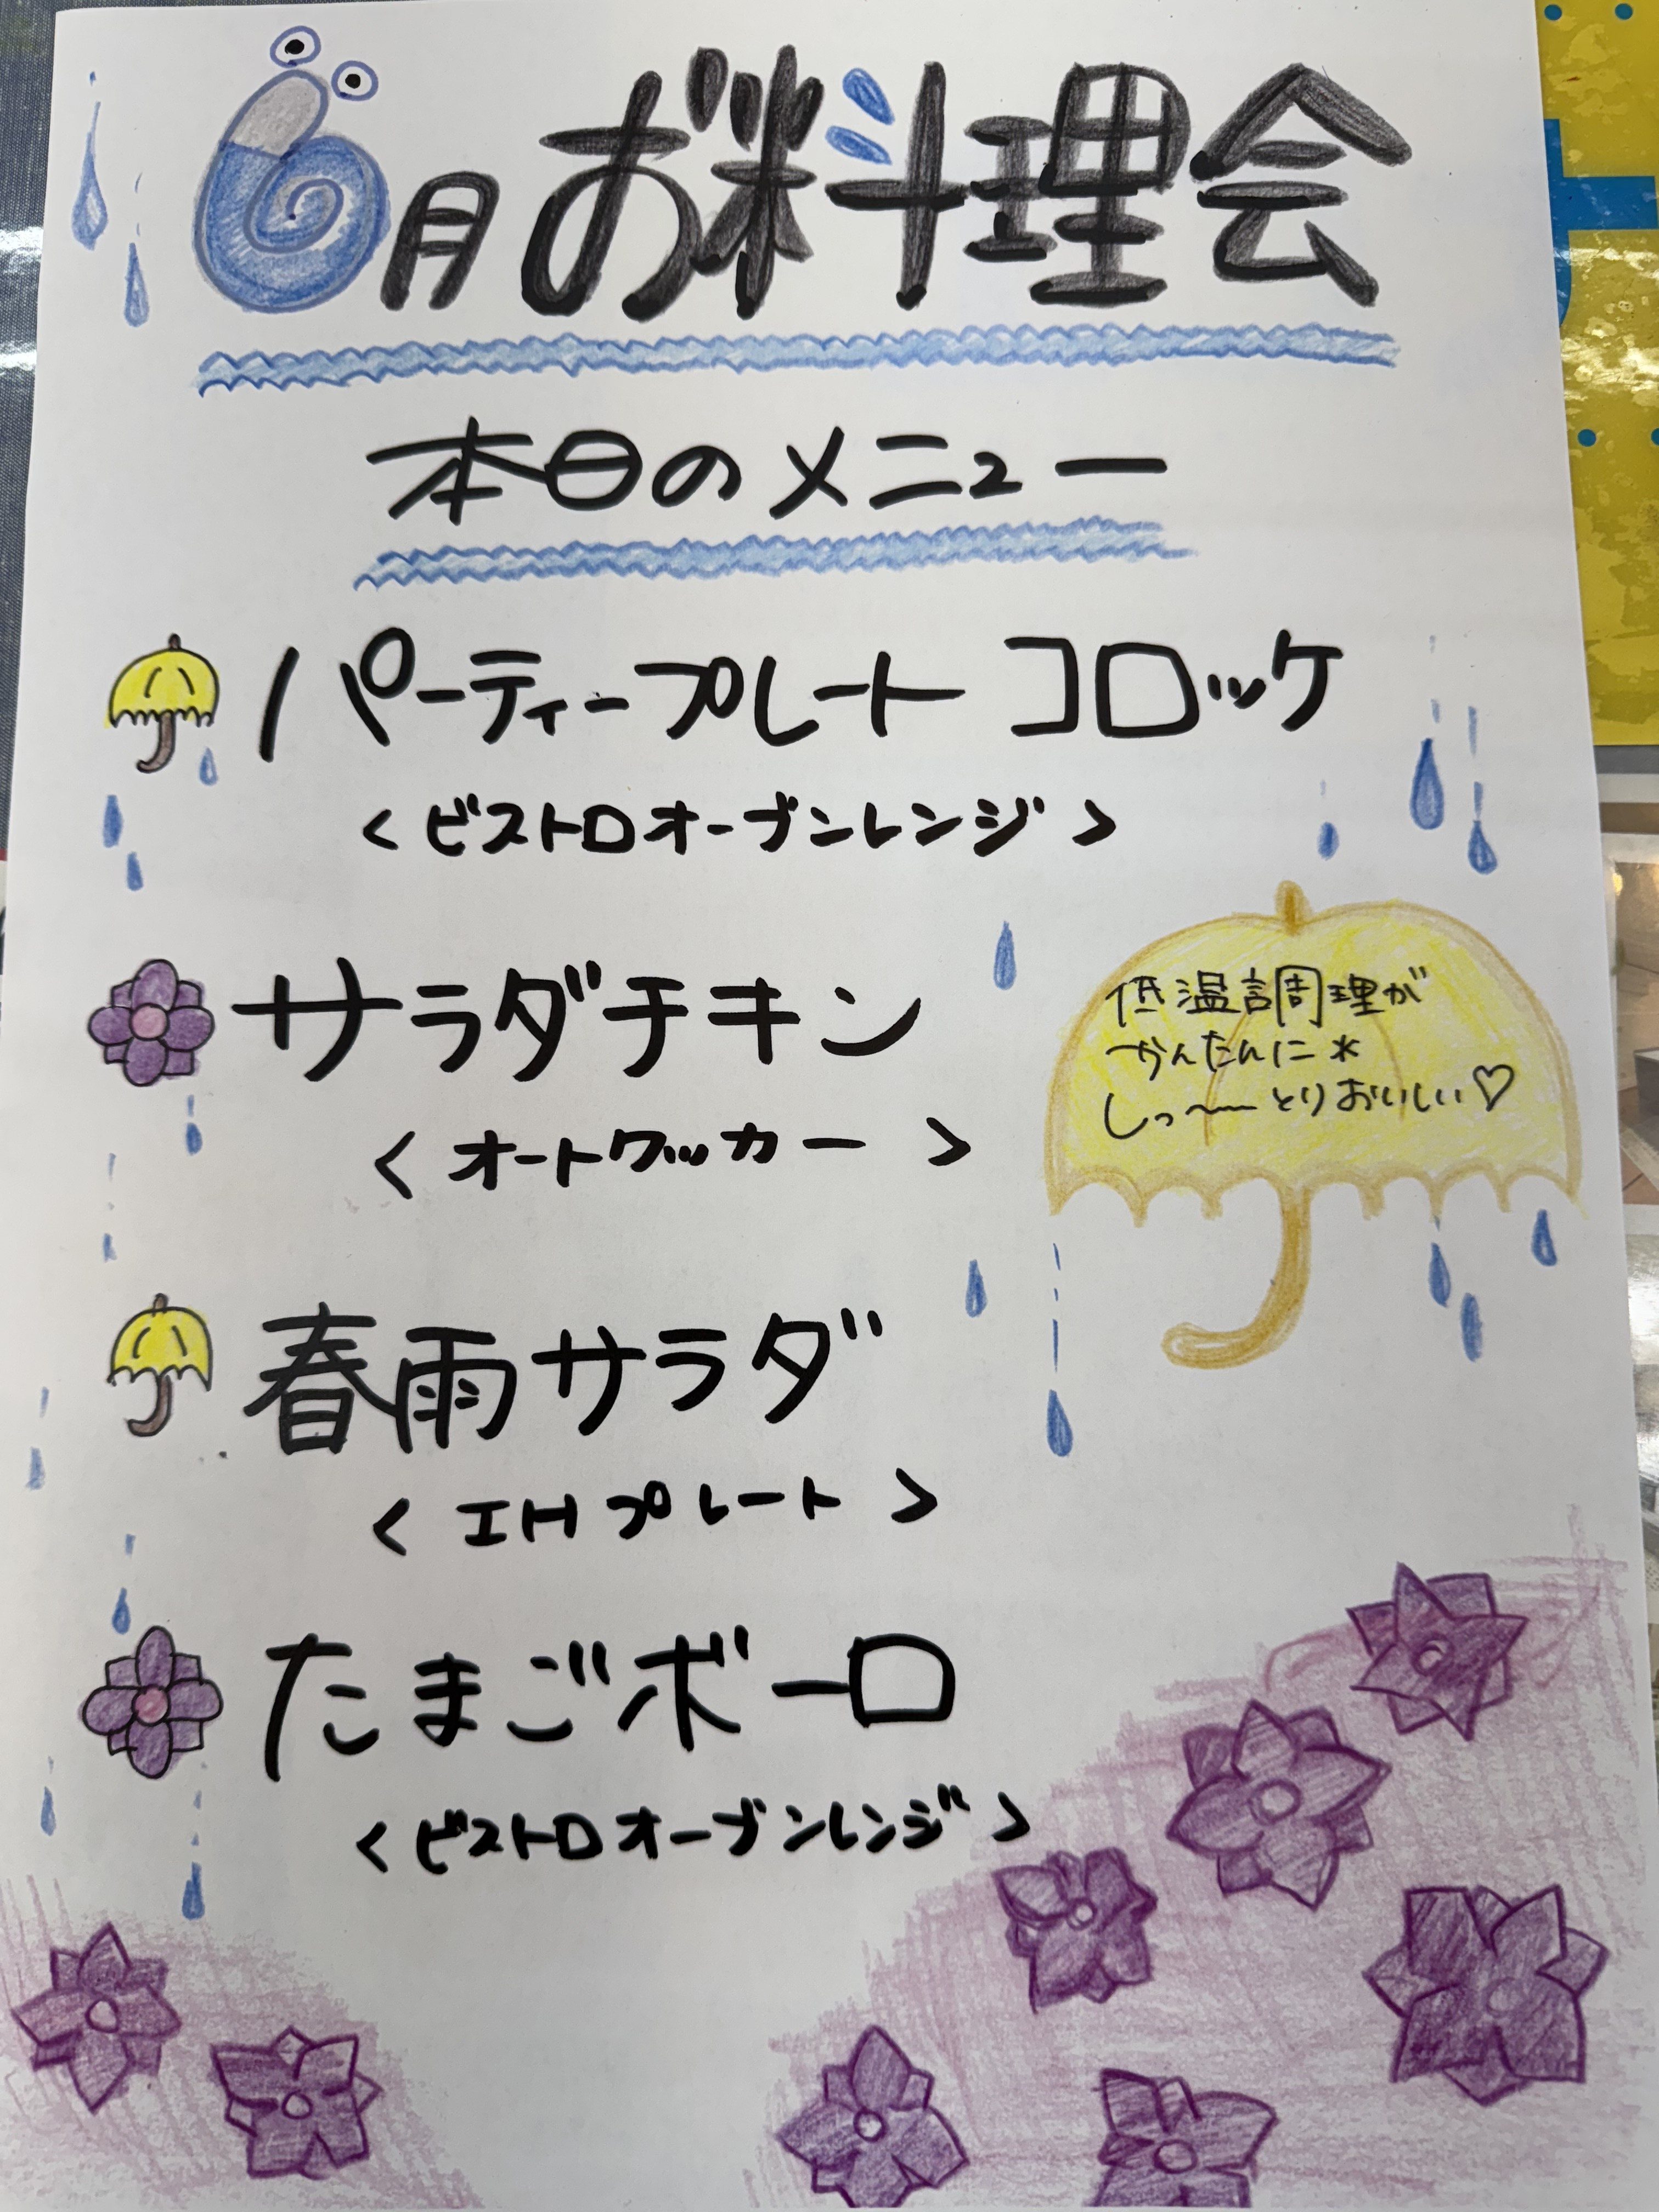 6月お料理会
本日のメニュー
パーティープレートコロッケ
<ビストロオーブンレンジ>
サラダチキン
<オートクッカー>
低温調理が
かんたんに*
しっ〜とりおいしい♡
春雨サラダ
<IHプレート>
たまごボーロ
<ビストロオーブンレンジ>